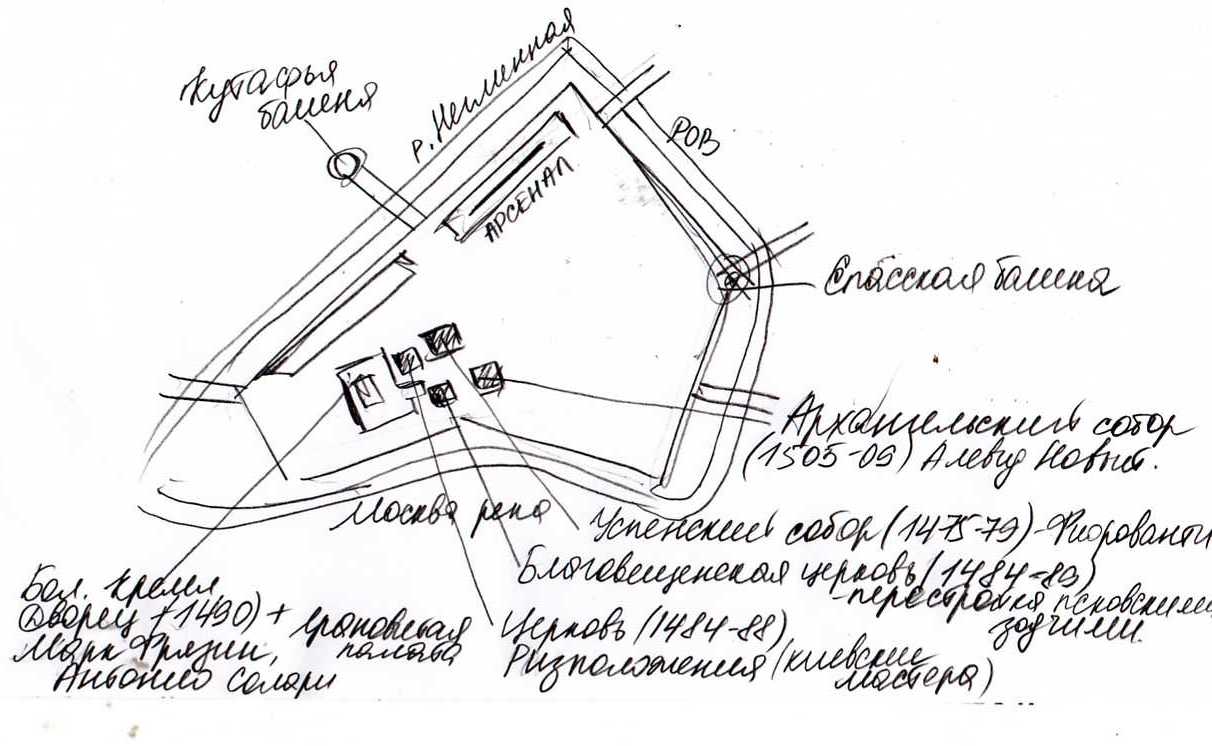 Кутафья
башня
р. Неглинная
РОВ
АРСЕНАЛ
Спасская башня
Архангельский собор
(1505-09) Алевиз Новый.
Москва река
Успенский собор (1475-79) - Фиораванти
Благовещенская церковь (1484-89)
- перестройка псковскими
зодчими.
Бол. Кремл
Дворец (1490) + грановитая
палата
Марк Фрязин,
Антонио Солари
Церковь (1484-88)
Ризположения (киевские
мастера)